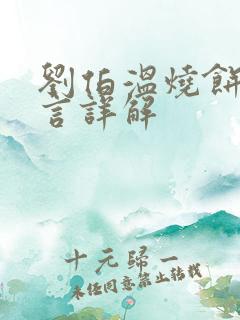 劉伯溫燒餅
言詳解
十元歸一
未经同意禁止转载